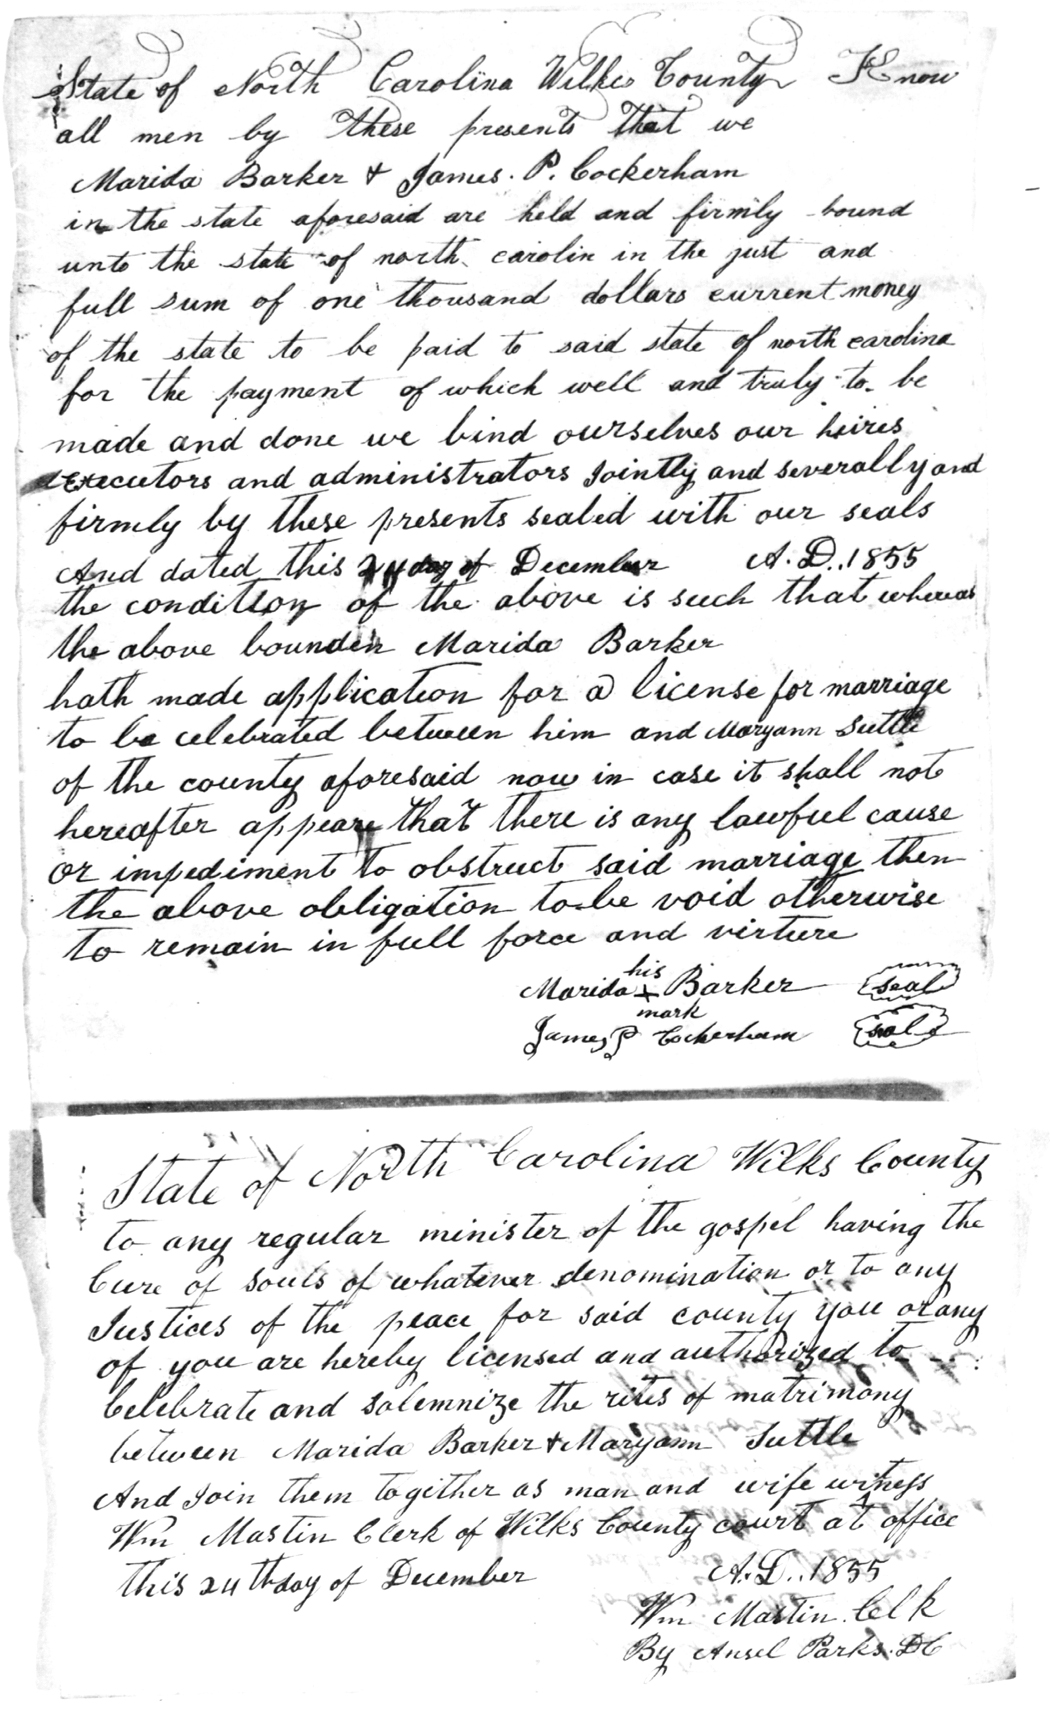 State of North Carolina Wilkes County Know
all men by these presents that we
Marida Barker + James. P. Cockerham
in the state aforesaid are held and firmly bound
unto the state of north carolin in the just and
full sum of one thousand dollars current money
of the state to be paid to said state of north carolina
for the payment of which well and truly to be
made and done we bind ourselves our heires
executors and administrators jointly and severally and
firmly by these presents sealed with our seals
And dated this 24 day of December A. D. 1855
the condition of the above is such that whereas
the above bounden Marida Barker
hath made application for a license for marriage
to be celebrated between him and Maryann Suttle
of the county aforesaid now in case it shall not
hereafter appeare that there is any lawful cause
or impediment to obstruct said marriage then
the above obligation to be void otherwise
to remain in full force and virture
his
Marida + Barker seal
mark
James P Cockerham seal
State of North Carolina Wilks County
to any regular minister of the gospel having the
Cure of souls of whatever denomination or to any
Justices of the peace for said county you or any
of you are hereby licensed and authorized to
Celebrate and solemnize the rites of matrimony
between Marida Barker + Maryann Suttle
And Join them together as man and wife witness
Wm Mastin Clerk of Wilks County court at office
this 24th day of December A. D. 1855
Wm Mastin Clk
By Ansel Parks. DC